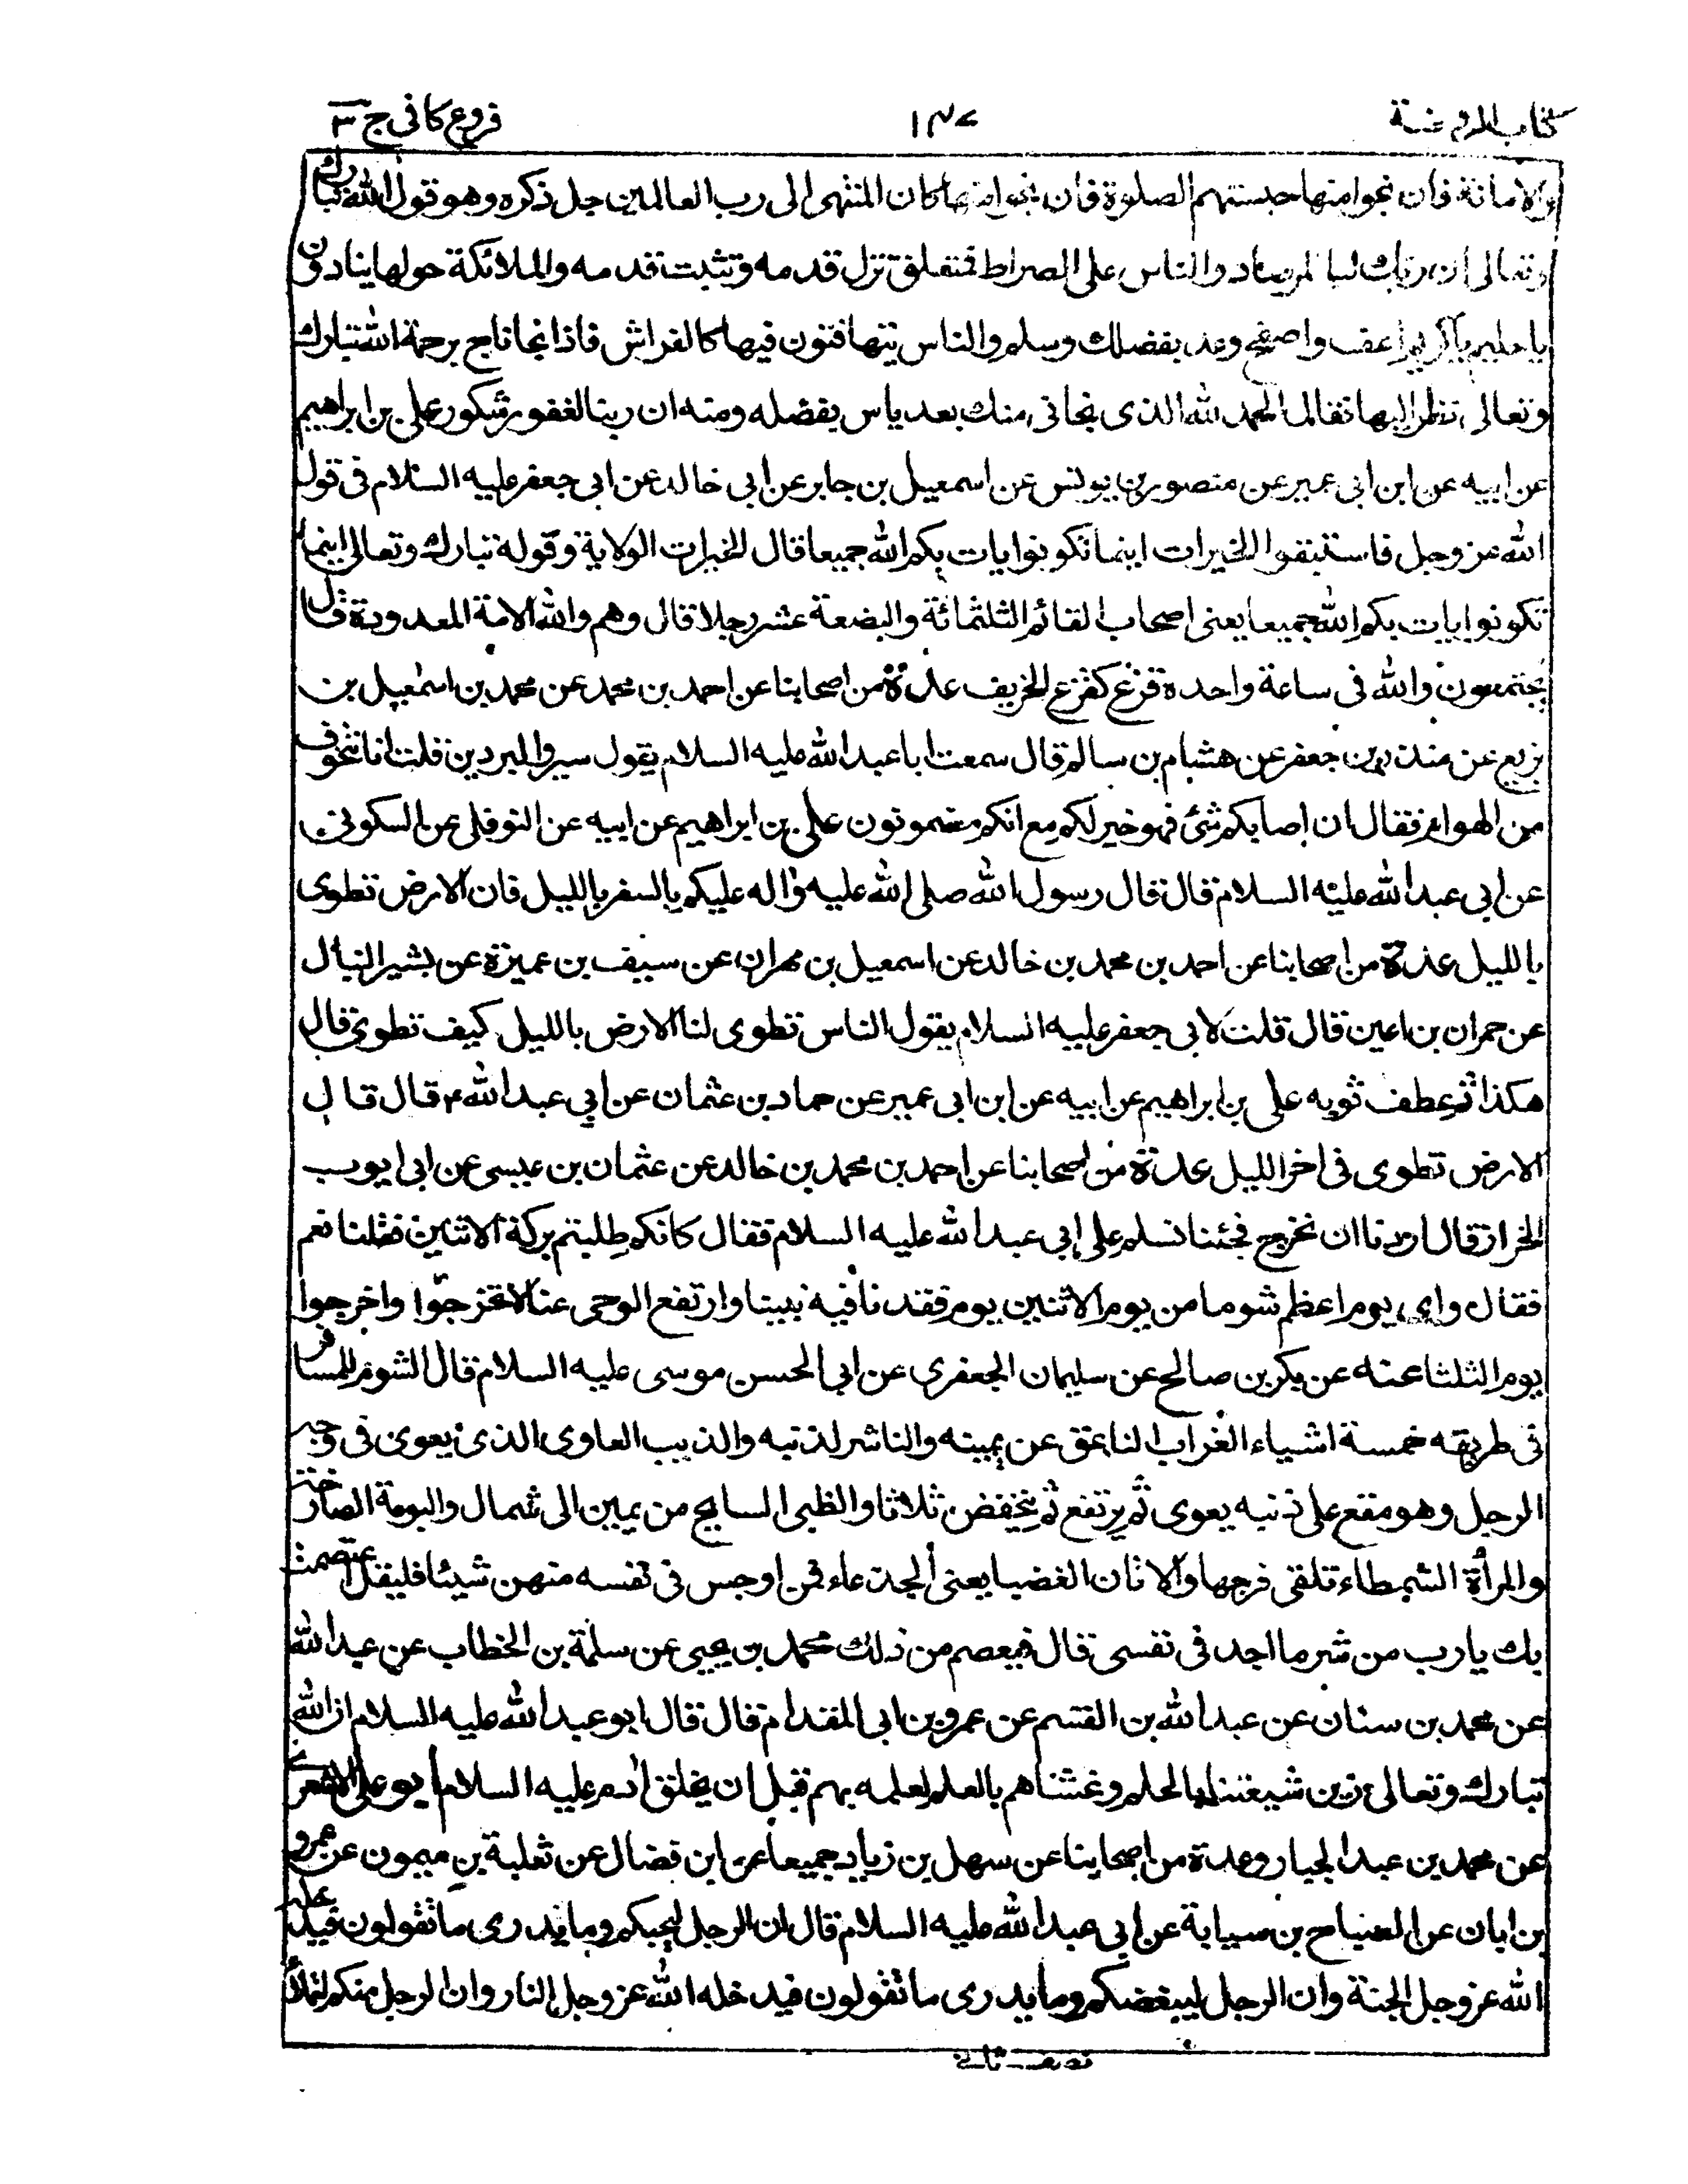 كتاب الروضة
١٤٧
فروع كافى ج ٣
والامانة فان نجوا منها حبستهم الصلوة فان نجوا منها كان المنتهى الى رب العالمين جل ذكره وهو قول الله تبارك
وتعالى ان ربك لبالمرصاد والناس على الصراط فمتعلق تزل قدمه وتثبت قدمه والملائكة حولها ينادون
يا حليم يا كريم اعف واصفح وعد بفضلك وسلم والناس يتهافتون فيها كالفراش فاذا نجا ناج برحمة الله تبارك
وتعالى نظر اليها فقال الحمد لله الذى نجانى منك بعد ياس بفضله ومنه ان ربنا لغفور شكور على بن ابراهيم
عن ابيه عن ابن ابى عمير عن منصور بن يونس عن اسمعيل بن جابر عن ابى خالد عن ابى جعفر عليه السلام فى قول
الله عز وجل فاستبقوا الخيرات اينما تكونوا يات بكم الله جميعا قال الخيرات الولاية وقوله تبارك وتعالى اينما
تكونوا يات بكم الله جميعا يعنى اصحاب القائم الثلثمائة والبضعة عشر رجلا قال وهم والله الامة المعدودة قال
يجتمعون والله فى ساعة واحده قزع كقزع الخريف عدة من اصحابنا عن احمد بن محمد عن محمد بن اسمعيل بن
بزيع عن منذر بن جعفر عن هشام بن سالم قال سمعت ابا عبد الله عليه السلام يقول سيروا البردين قلت انا نتخوف
من الهوام فقال ان اصابكم شئ فهو خير لكم مع انكم مضمونون على بن ابراهيم عن ابيه عن النوفلى عن السكونى
عن ابى عبد الله عليه السلام قال قال رسول الله صلى الله عليه واله عليكم بالسفر بالليل فان الارض تطوى
بالليل عدة من اصحابنا عن احمد بن محمد بن خالد عن اسمعيل بن مهران عن سيف بن عميرة عن بشير النبال
عن حمران بن اعين قال قلت لابى جعفر عليه السلام يقول الناس تطوى لنا الارض بالليل كيف تطوى قال
هكذا ثم عطف ثوبه على بن ابراهيم عن ابيه عن ابن ابى عمير عن حماد بن عثمان عن ابى عبد الله ع قال قال
الارض تطوى فى اخر الليل عدة من اصحابنا عن احمد بن محمد بن خالد عن عثمان بن عيسى عن ابى ايوب
الخراز قال اردنا ان نخرج فجئنا نسلم على ابى عبد الله عليه السلام فقال كانكم طلبتم بركة الاثنين فقلنا نعم
فقال واى يوم اعظم شوما من يوم الاثنين يوم فقدنا فيه نبينا وارتفع الوحى عنا لا تخرجوا واخرجوا
يوم الثلثا عنه عن بكر بن صالح عن سليمان الجعفرى عن ابى الحسن موسى عليه السلام قال الشوم للمسافر
فى طريقه خمسة اشياء الغراب الناعق عن يمينه والناشر لذنبه والذيب العاوى الذى يعوى فى وجه
الرجل وهو مقع على ذنبه يعوى ثم يرتفع ثم ينخفض ثلاثا والظبى السانح من يمين الى شمال والبومة الصارخة
والمرأة الشمطاء تلقى فرجها والاتان الغضبا يعنى الجدعاء فمن اوجس فى نفسه منهن شيئا فليقل اعتصمت
بك يا رب من شر ما اجد فى نفسى قال فيعصم من ذلك محمد بن يحيى عن سلمة بن الخطاب عن عبد الله
عن محمد بن سنان عن عبد الله بن القسم عن عمرو بن ابى المقدام قال قال ابو عبد الله عليه السلام ان الله
تبارك وتعالى زين شيعتنا بالحلم وغشاهم بالعلم لعلمه بهم قبل ان يخلق ادم عليه السلام ابو على الاشعرى
عن محمد بن عبد الجبار وعدة من اصحابنا عن سهل بن زياد جميعا عن ابن فضال عن ثعلبة بن ميمون عن عمرو
بن ابان عن الصباح بن سيابة عن ابى عبد الله عليه السلام قال ان الرجل ليحبكم وما يدرى ما تقولون فيدخله
الله عز وجل الجنة وان الرجل ليبغضكم وما يدرى ما تقولون فيدخله الله عز وجل النار وان الرجل منكم لتملأ